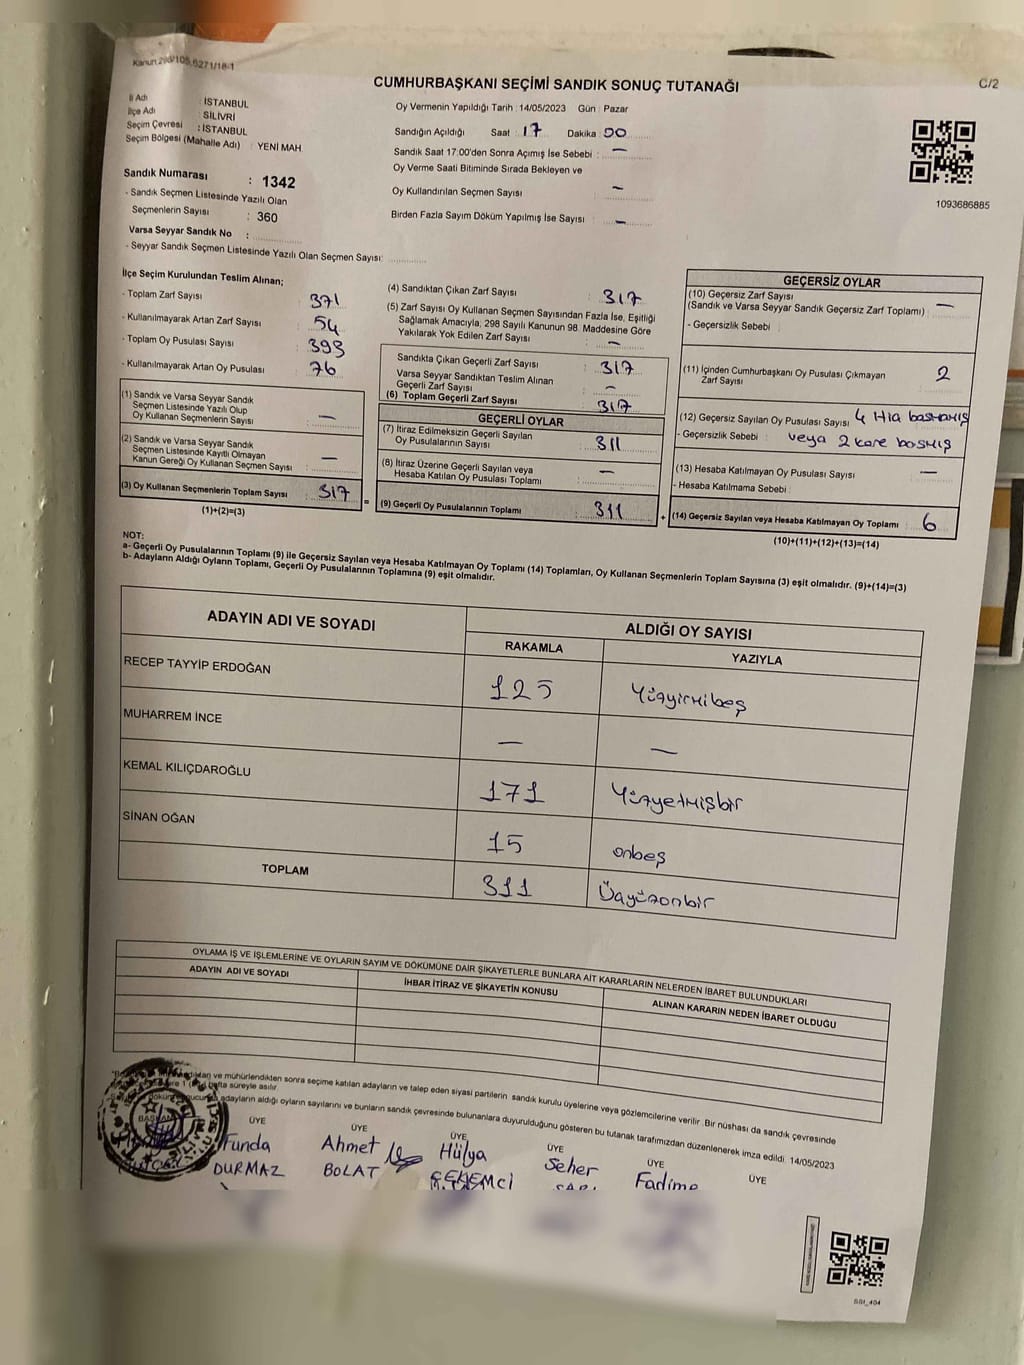 Kanun 298/105,6271/18-1
CUMHURBAŞKANI SEÇİMİ SANDIK SONUÇ TUTANAĞI
C/2
İl Adı : İSTANBUL
İlçe Adı : SİLİVRİ
Seçim Çevresi : İSTANBUL
Seçim Bölgesi (Mahalle Adı) : YENİ MAH.
Sandık Numarası : 1342
- Sandık Seçmen Listesinde Yazılı Olan
Seçmenlerin Sayısı : 360
Varsa Seyyar Sandık No :
- Seyyar Sandık Seçmen Listesinde Yazılı Olan Seçmen Sayısı:
Oy Vermenin Yapıldığı Tarih : 14/05/2023 Gün : Pazar
Sandığın Açıldığı Saat : 17 Dakika : 00
Sandık Saat 17:00'den Sonra Açımış İse Sebebi : —
Oy Verme Saati Bitiminde Sırada Bekleyen ve
Oy Kullandırılan Seçmen Sayısı : —
Birden Fazla Sayım Döküm Yapılmış İse Sayısı : —
1093686885
İlçe Seçim Kurulundan Teslim Alınan;
- Toplam Zarf Sayısı : 371
- Kullanılmayarak Artan Zarf Sayısı : 54
- Toplam Oy Pusulası Sayısı : 393
- Kullanılmayarak Artan Oy Pusulası : 76
(1) Sandık ve Varsa Seyyar Sandık
Seçmen Listesinde Yazılı Olup
Oy Kullanan Seçmenlerin Sayısı : —
(2) Sandık ve Varsa Seyyar Sandık
Seçmen Listesinde Kayıtlı Olmayan
Kanun Gereği Oy Kullanan Seçmen Sayısı : —
(3) Oy Kullanan Seçmenlerin Toplam Sayısı : 317
(1)+(2)=(3)
(4) Sandıktan Çıkan Zarf Sayısı : 317
(5) Zarf Sayısı Oy Kullanan Seçmen Sayısından Fazla İse, Eşitliği
Sağlamak Amacıyla, 298 Sayılı Kanunun 98. Maddesine Göre
Yakılarak Yok Edilen Zarf Sayısı : —
Sandıkta Çıkan Geçerli Zarf Sayısı : 317
Varsa Seyyar Sandıktan Teslim Alınan
Geçerli Zarf Sayısı : —
(6) Toplam Geçerli Zarf Sayısı : 317
GEÇERLİ OYLAR
(7) İtiraz Edilmeksizin Geçerli Sayılan
Oy Pusulalarının Sayısı : 311
(8) İtiraz Üzerine Geçerli Sayılan veya
Hesaba Katılan Oy Pusulası Toplamı : —
= (9) Geçerli Oy Pusulalarının Toplamı : 311
GEÇERSİZ OYLAR
(10) Geçersiz Zarf Sayısı : —
(Sandık ve Varsa Seyyar Sandık Geçersiz Zarf Toplamı)
- Geçersizlik Sebebi :
(11) İçinden Cumhurbaşkanı Oy Pusulası Çıkmayan
Zarf Sayısı : 2
(12) Geçersiz Sayılan Oy Pusulası Sayısı : 4 Hiç basmamış
- Geçersizlik Sebebi : veya 2 kere basmış
(13) Hesaba Katılmayan Oy Pusulası Sayısı : —
- Hesaba Katılmama Sebebi :
+ (14) Geçersiz Sayılan veya Hesaba Katılmayan Oy Toplamı : 6
(10)+(11)+(12)+(13)=(14)
NOT:
a- Geçerli Oy Pusulalarının Toplamı (9) ile Geçersiz Sayılan veya Hesaba Katılmayan Oy Toplamı (14) Toplamları, Oy Kullanan Seçmenlerin Toplam Sayısına (3) eşit olmalıdır. (9)+(14)=(3)
b- Adayların Aldığı Oyların Toplamı, Geçerli Oy Pusulalarının Toplamına (9) eşit olmalıdır.
ADAYIN ADI VE SOYADI ALDIĞI OY SAYISI
RAKAMLA YAZIYLA
RECEP TAYYİP ERDOĞAN 125 Yüzyirmibeş
MUHARREM İNCE — —
KEMAL KILIÇDAROĞLU 171 Yüzyetmişbir
SİNAN OĞAN 15 onbeş
TOPLAM 311 Üçyüzonbir
OYLAMA İŞ VE İŞLEMLERİNE VE OYLARIN SAYIM VE DÖKÜMÜNE DAİR ŞİKAYETLERLE BUNLARA AİT KARARLARIN NELERDEN İBARET BULUNDUKLARI
ADAYIN ADI VE SOYADI İHBAR İTİRAZ VE ŞİKAYETİN KONUSU ALINAN KARARIN NEDEN İBARET OLDUĞU
ve mühürlendikten sonra seçime katılan adayların ve talep eden siyasi partilerin sandık kurulu üyelerine veya gözlemcilerine verilir. Bir nüshası da sandık çevresinde
hafta süreyle asılır.
adayların aldığı oyların sayılarını ve bunların sandık çevresinde bulunanlara duyurulduğunu gösteren bu tutanak tarafımızdan düzenlenerek imza edildi. 14/05/2023
BAŞKAN ÜYE ÜYE ÜYE ÜYE ÜYE ÜYE
Funda Ahmet Hülya Seher Fadime
DURMAZ BOLAT